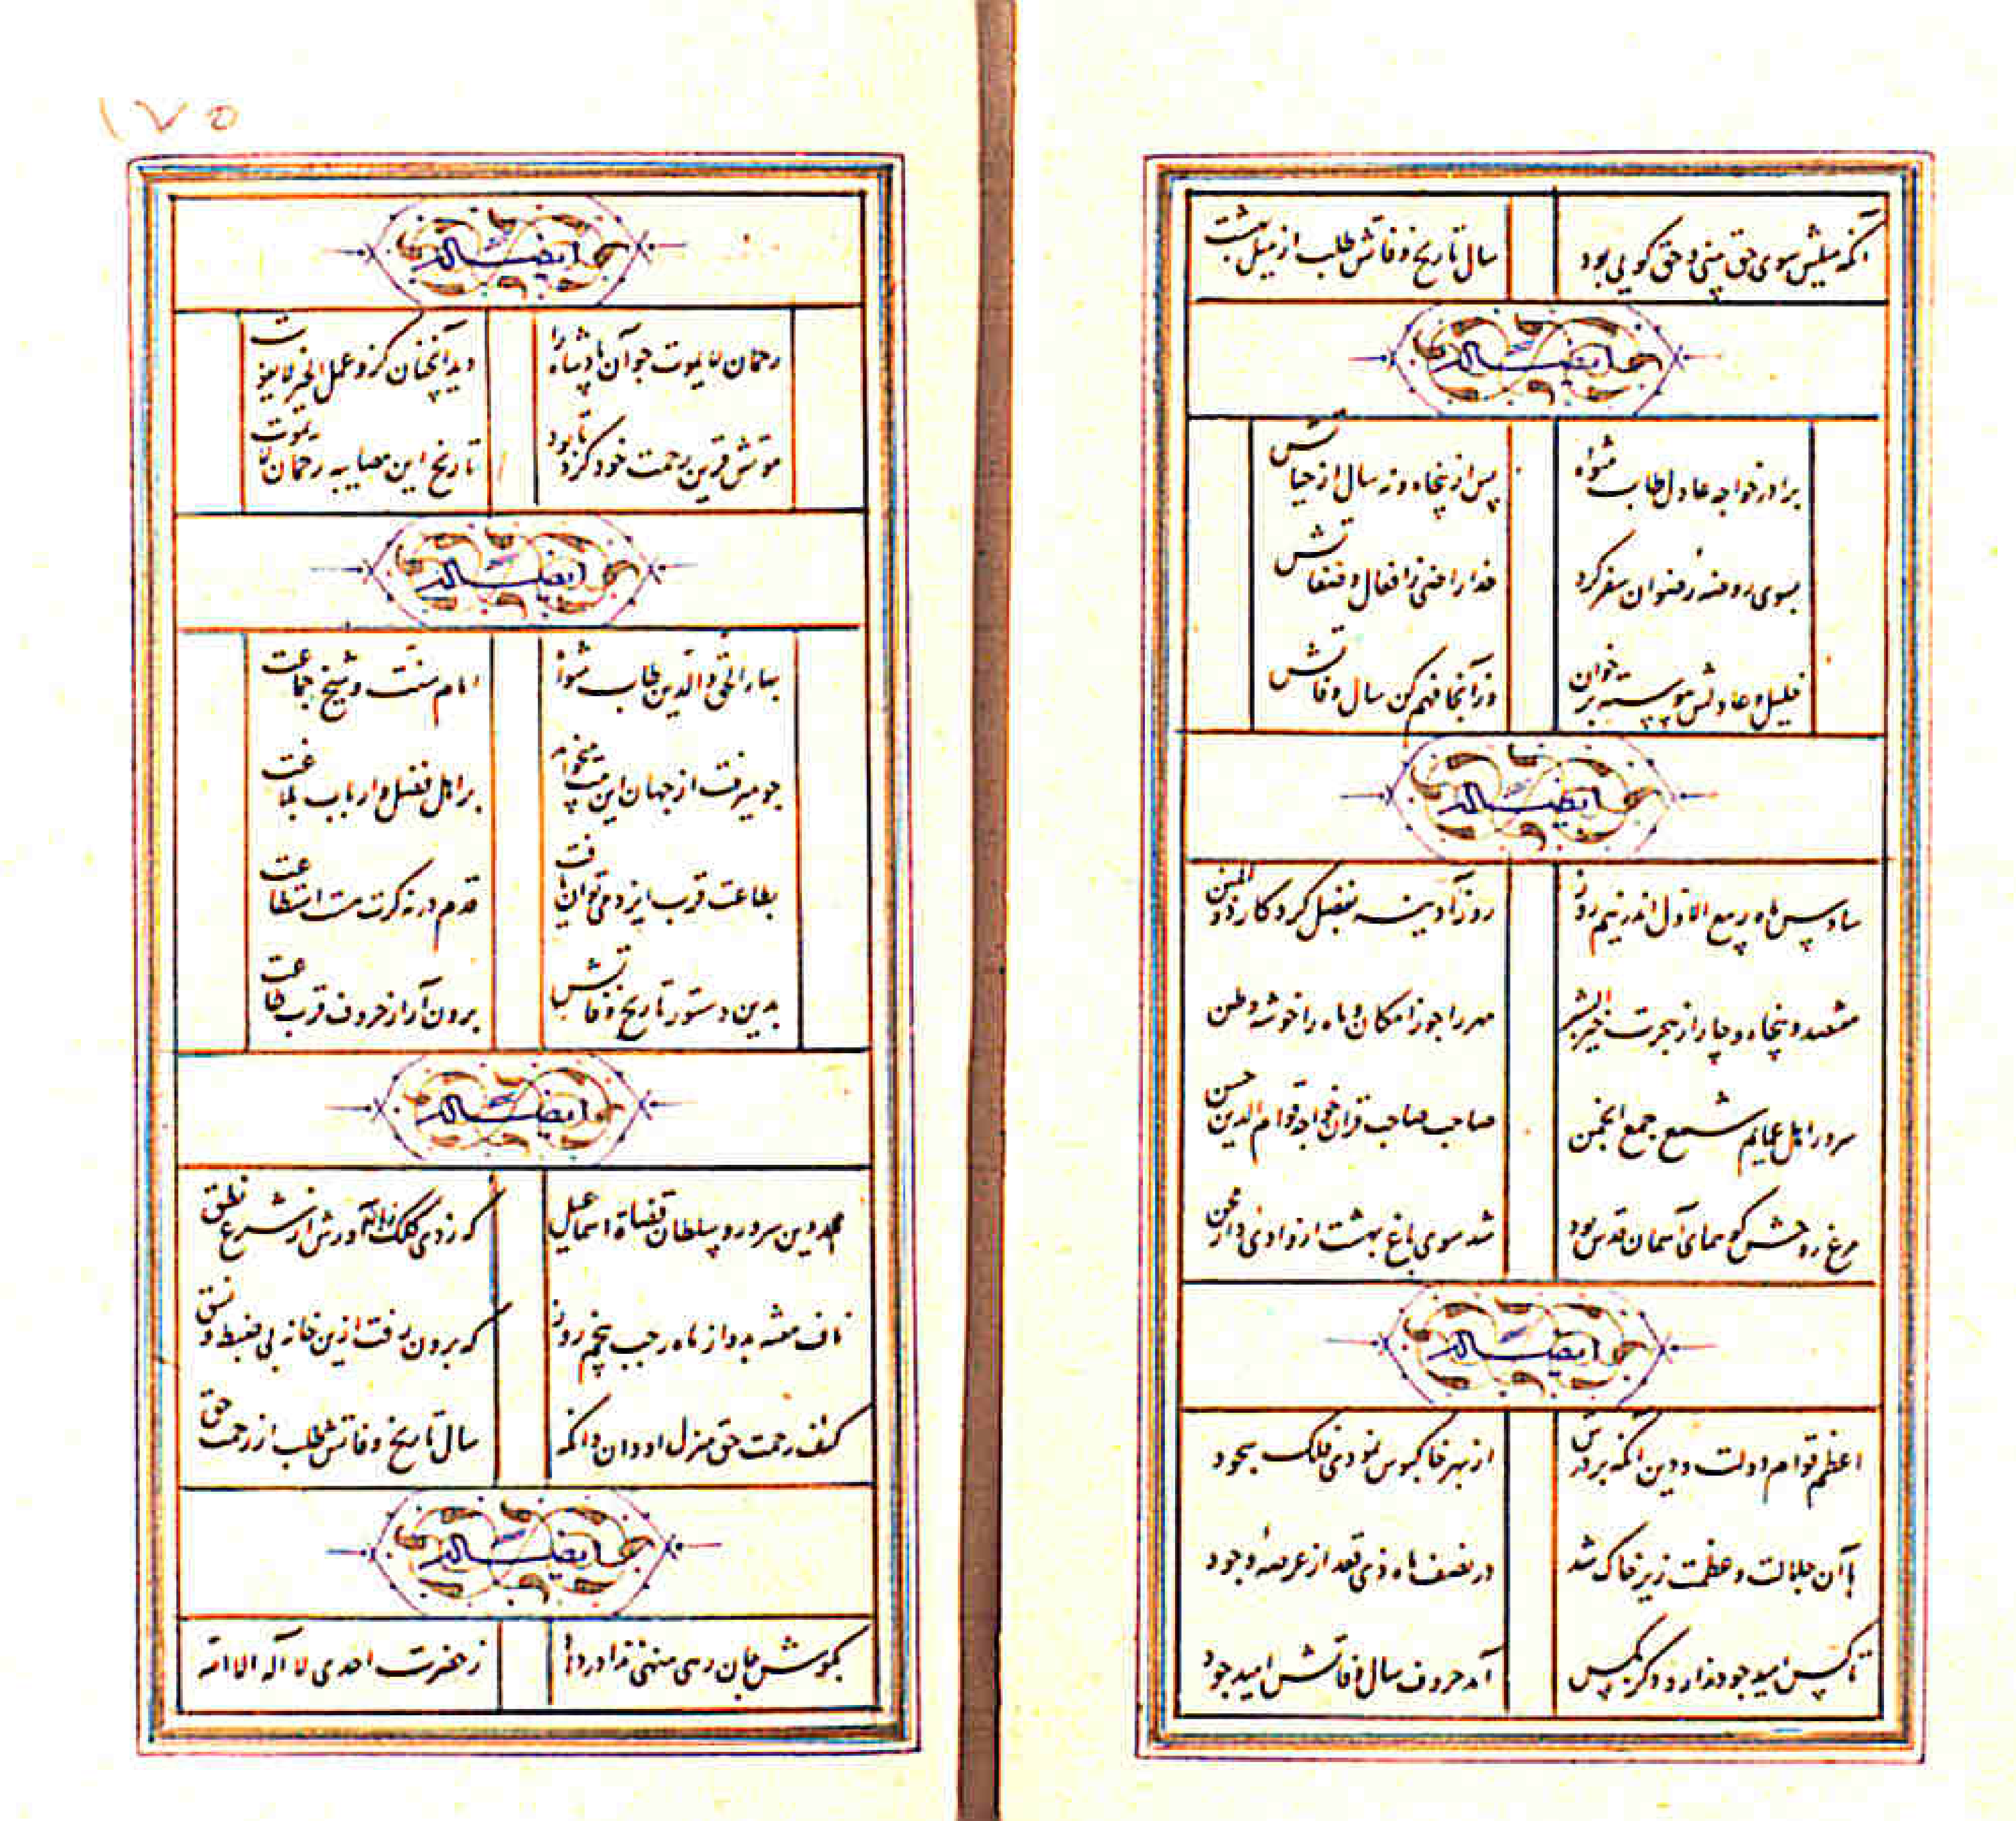 آنکه میلش سوی حق بینی و حق گویی بود
سال تاریخ وفاتش طلب از میل بهشت
ایضاً له
برادر خواجه عادل طاب مثواه
پس از پنجاه و نه سال از حیاتش
بسوی روضه رضوان سفر کرد
خدا راضی ز افعال و صفاتش
خلیل عادلش پیوسته برخوان
وز آنجا فهم کن سال وفاتش
ایضاً له
سادس ماه ربیع الاول اندر نیم روز
روز آدینه بفضل کردکار ذو المنن
هفصد و پنجاه و چار از هجرت خیر البشر
مهر را جوزا مکان و ماه را خوشه وطن
سرور اهل عمایم شمع جمع انجمن
صاحب صاحب قران خواجه قوام الدین حسن
مرغ روحش کو همای آسمان قدس بود
شد سوی باغ بهشت از وادی دار محن
ایضاً له
اعظم قوام دولت و دین آنکه بر درش
از بهر خاکبوس نمودی فلک سجود
با آن جلالت و عظمت زیر خاک شد
در نصف ماه ذی قعد از عرصهٔ وجود
تا کس امید جود ندارد دگر ز کس
آمد حروف سال وفاتش امید جود
۱۷۵
ایضاً له
رحمان لایموت چو آن پادشاه را
دید آنچنان کزو عمل الخیر لایفوت
موتش قرین رحمت خود کرد تا بود
تاریخ این معامله رحمان لایموت
ایضاً له
بهاء الحق و الدین طاب مثواه
امام سنت و شیخ جماعت
چو میرفت از جهان این بیت میخواند
بر اهل فضل و ارباب بلاغت
بطاعت قرب ایزد می توان یافت
قدم در نه گرت هست استطاعت
بدین دستور تاریخ وفاتش
برون آر از حروف قرب طاعت
ایضاً له
مجد دین سرور و سلطان قضاة اسماعیل
که زدی کلک زبان آورش از شرع نطق
ناف هفته بد و از ماه رجب پنجم روز
که برون رفت ازین خانه بی ضبط و نسق
کنف رحمت حق منزل او دان و آنکه
سال تاریخ وفاتش طلب از رحمت حق
ایضاً له
بگوش جان رهی منهئی ندا در داد
ز حضرت احدی لا اله الا الله